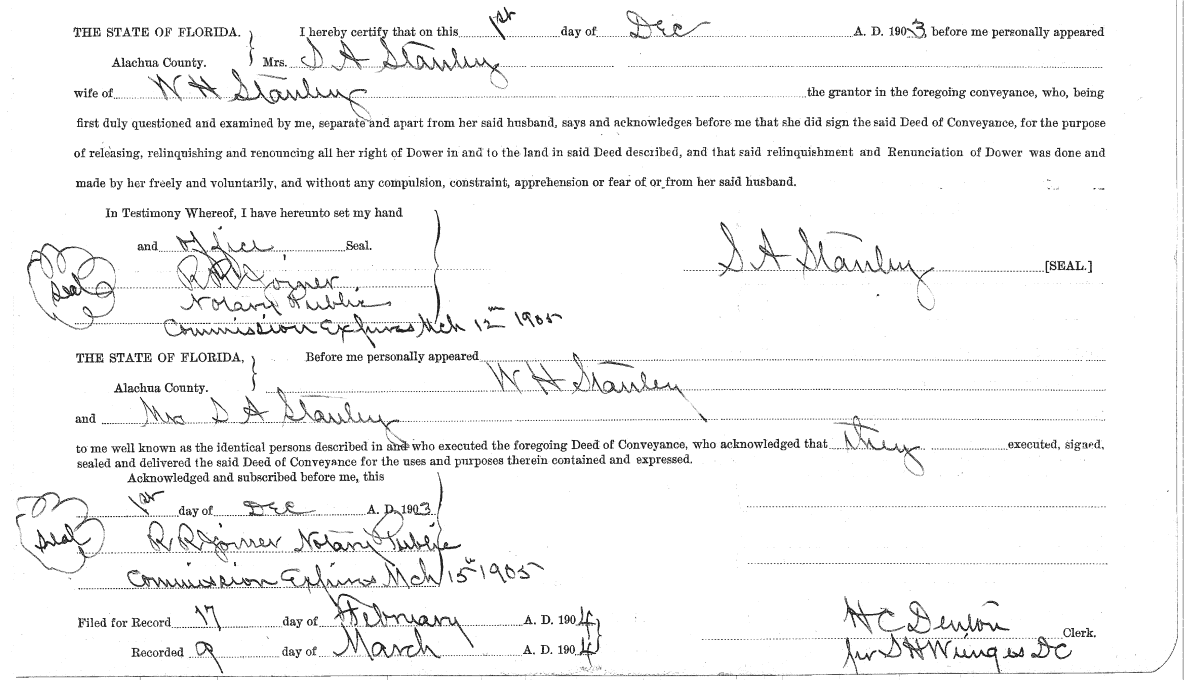 THE STATE OF FLORIDA. } I hereby certify that on this 1st day of Dec A. D. 1903 before me personally appeared
Alachua County. Mrs. S A Stanley
wife of W H Stanley the grantor in the foregoing conveyance, who, being
first duly questioned and examined by me, separate and apart from her said husband, says and acknowledges before me that she did sign the said Deed of Conveyance, for the purpose
of releasing, relinquishing and renouncing all her right of Dower in and to the land in said Deed described, and that said relinquishment and Renunciation of Dower was done and
made by her freely and voluntarily, and without any compulsion, constraint, apprehension or fear of or from her said husband.
In Testimony Whereof, I have hereunto set my hand
and office Seal.
S A Stanley [SEAL.]
Seal
R R Joiner
Notary Public
Commission Expires Mch 12th 1905
THE STATE OF FLORIDA, } Before me personally appeared
Alachua County. W H Stanley
and Mrs S A Stanley
to me well known as the identical persons described in and who executed the foregoing Deed of Conveyance, who acknowledged that they executed, signed,
sealed and delivered the said Deed of Conveyance for the uses and purposes therein contained and expressed.
Acknowledged and subscribed before me, this
1st day of Dec A. D. 1903
Seal
R R Joiner Notary Public
Commission Expires Mch 15th 1905
Filed for Record 17 day of February A. D. 1904
Recorded 9 day of March A. D. 1904
H C Denton Clerk.
per S H Wienges DC